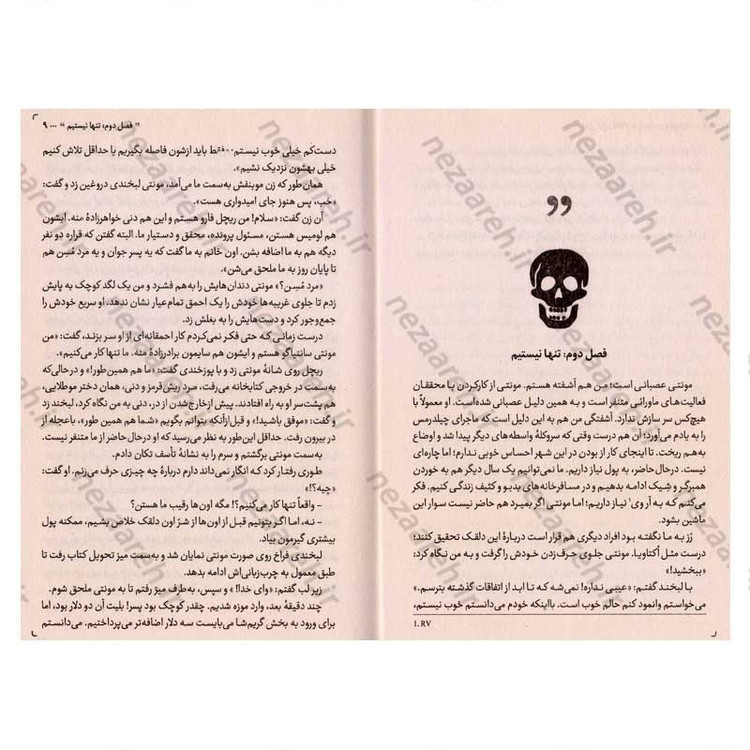 ”
فصل دوم: تنها نیستیم
مونتی عصبانی است؛ من هم آشفته هستم. مونتی از کارکردن با محققان
فعالیت‌های ماورائی متنفر است و به همین دلیل عصبانی شده‌است. او معمولاً با
هیچ‌کس سر سازش ندارد. آشفتگی من هم به این دلیل است که ماجرای چیلدرمس
را به یادم می‌آورد؛ آن هم درست وقتی که سروکلهٔ واسطه‌های دیگر پیدا شد و اوضاع
به‌هم ریخت. تا اینجای کار از بودن در این شهر احساس خوبی ندارم؛ اما چاره‌ای
نیست. درحال‌حاضر، به پول نیاز داریم. ما نمی‌توانیم یک سال دیگر هم به خوردن
همبرگر و شِیک ادامه بدهیم و در مسافرخانه‌های بدبو و کثیف زندگی کنیم. فکر
می‌کنم که به آر وی¹ نیاز داریم؛ اما مونتی اگر بمیرد هم حاضر نیست سوار این
ماشین بشود.
رُز به ما نگفته بود افراد دیگری هم قرار است دربارهٔ این دلقک تحقیق کنند؛
درست مثل اُکتاویا. مونتی جلوی حرف‌زدن خودش را گرفت و به من نگاه کرد:
«ببخشید!»
با لبخند گفتم: «عیبی نداره! نمی‌شه که تا ابد از اتفاقات گذشته بترسم.»
می‌خواستم وانمود کنم حالم خوب است. بااینکه خودم می‌دانستم خوب نیستم،
1. RV
” فصل دوم: تنها نیستیم “ ... ۹
دست‌کم خیلی خوب نیستم... فقط باید ازشون فاصله بگیریم یا حداقل تلاش کنیم
خیلی بهشون نزدیک نشیم».
همان‌طور که زن موبنفش به‌سمت ما می‌آمد، مونتی لبخندی دروغین زد و گفت:
«خب، پس هنوز جای امیدواری هست».
آن زن گفت: «سلام! من ریچل فارو هستم و این هم دنی خواهرزادهٔ منه. ایشون
هم لومیس هستن، مسئول پرونده، محقق و دستیار ما. البته گفتن که قراره دو نفر
دیگه هم به ما اضافه بشن. اون خانم به ما گفت که یه پسر جوان و یه مرد مُسِن هم
تا پایان روز به ما ملحق می‌شن».
«مرد مُسِن؟» مونتی دندان‌هایش را به‌هم فشرد و من یک لگد کوچک به پایش
زدم تا جلوی غریبه‌ها خودش را یک احمق تمام‌عیار نشان ندهد. او سریع خودش را
جمع‌وجور کرد و دست‌هایش را به بغلش زد.
درست زمانی که حتی فکر نمی‌کردم کار احمقانه‌ای از او سر بزند، گفت: «من
مونتی سانتیاگو هستم و ایشون هم سایمون برادرزادهٔ منه. ما تنها کار می‌کنیم».
ریچل روی شانهٔ مونتی زد و با پوزخندی گفت: «ما هم همین‌طور!» و درحالی‌که
به‌سمت در خروجی کتابخانه می‌رفت، مرد ریش‌قرمز و دنی، همان دختر موطلایی،
هم پشت‌سر او به راه افتادند. پیش ازخارج‌شدن از در، دنی به من نگاه کرد، لبخند زد
و گفت: «موفق باشید!» و قبل‌ازآنکه بتوانم بگویم «شما هم همین طور»، باعجله از
در بیرون رفت. حداقل این‌طور به نظر می‌رسید که او درحال‌حاضر از ما متنفر نیست.
به‌سمت مونتی برگشتم و سرم را به نشانهٔ تأسف تکان دادم.
طوری رفتار کرد که انگار نمی‌داند دارم دربارهٔ چه چیزی حرف می‌زنم. او گفت:
«چیه؟!»
- واقعاً تنها کار می‌کنیم؟! مگه اون‌ها رقیب ما هستن؟
- نه، اما اگر بتونیم قبل از اون‌ها از شرّ اون دلقک خلاص بشیم، ممکنه پول
بیشتری گیرمون بیاد.
لبخندی فراخ روی صورت مونتی نمایان شد و به‌سمت میز تحویل کتاب رفت تا
طبق معمول به چرب‌زبانی‌اش ادامه بدهد.
زیر لب گفتم: «وای خدا!» و سپس، به‌طرف میز رفتم تا به مونتی ملحق شوم.
چند دقیقهٔ بعد، وارد موزه شدیم. چقدر کوچک بود پسر! بلیت آن دو دلار بود، اما
برای ورود به بخش گریم‌شا می‌بایست سه دلار اضافه‌تر می‌پرداختیم. می‌دانستم
nezaareh.ir